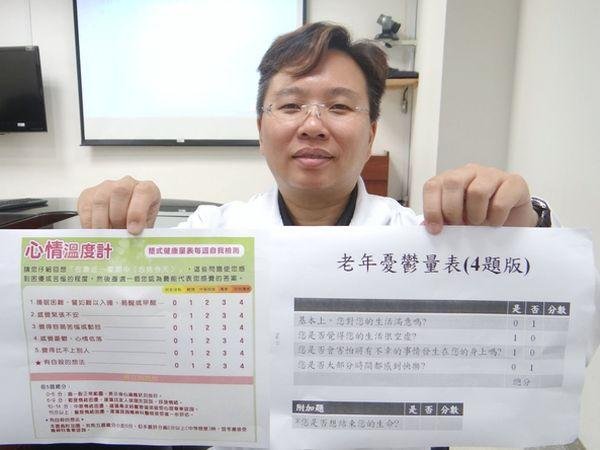 心情溫度計
簡式健康量表每週自我檢測
請您仔細回想
，這些問題使您感
到困擾或苦惱的程度，然後選一個您認為最能代表您感覺的答案。
1.睡眠困難，譬如難以入睡、易醒或早醒 0 1 2 3 4
2.感覺緊張不安 0 1 2 3 4
3.覺得容易苦惱或動怒 0 1 2 3 4
4.感覺憂鬱、心情低落 0 1 2 3 4
5.覺得比不上別人 0 1 2 3 4
★有自殺的想法 0 1 2 3 4
老年憂鬱量表(4題版)
是 否 分數
基本上，您對您的生活滿意嗎? 0 1
您是否覺得您的生活很空虛? 1 0
您是否會害怕將有不幸的事情發生在您的身上嗎? 1 0
您是否大部分時間都感到快樂? 0 1
總分
附加題 是 否 分數
※您是否想結束您的生命?